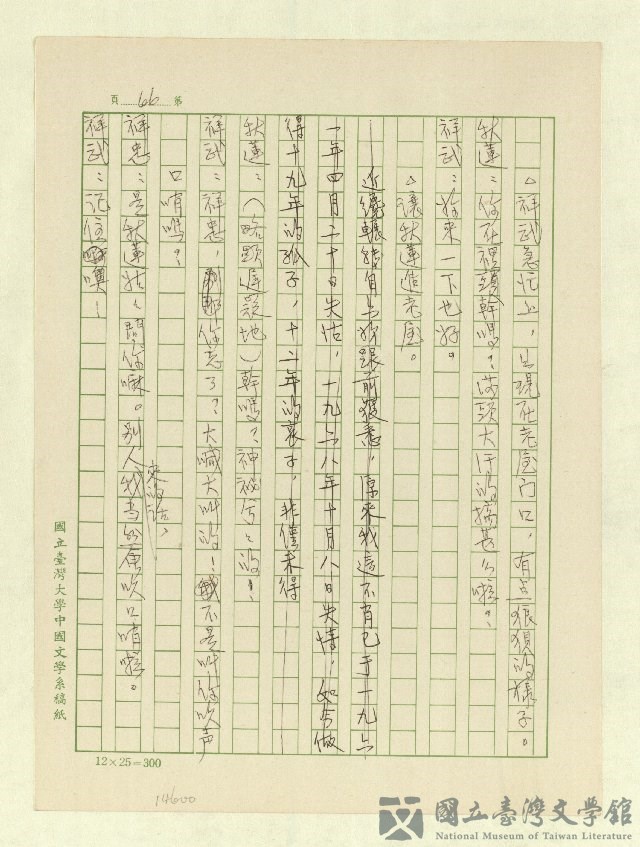 第 66 頁
△祥武急忙上，出現在老屋門口，有点狼狽的樣子。
秋蓮：你在裡頭幹嗎？滿頭大汗的搞甚么啦？
祥武：妳來一下也好。
△讓秋蓮進老屋。
近纔輾轉自亡妳跟前獲悉，原來我這不肖已于一九六
一年四月二十日失怙，一九六八年十月八日失恃，如今做
得十九年的孤子，十二年的哀子，非僅未得
秋蓮：（略顯遲疑地）幹嗎？神祕兮兮的？
祥武：祥忠，你走了？大喊大叫的！不是叫你吹声
口哨嗎？
祥忠：是秋蓮姑，跟你嘛。別人來的話，我當然會吹口哨啦。
祥武：記住噢！
國立臺灣大學中國文學系稿紙
12×25=300
14600
國立臺灣文學館
National Museum of Taiwan Literature